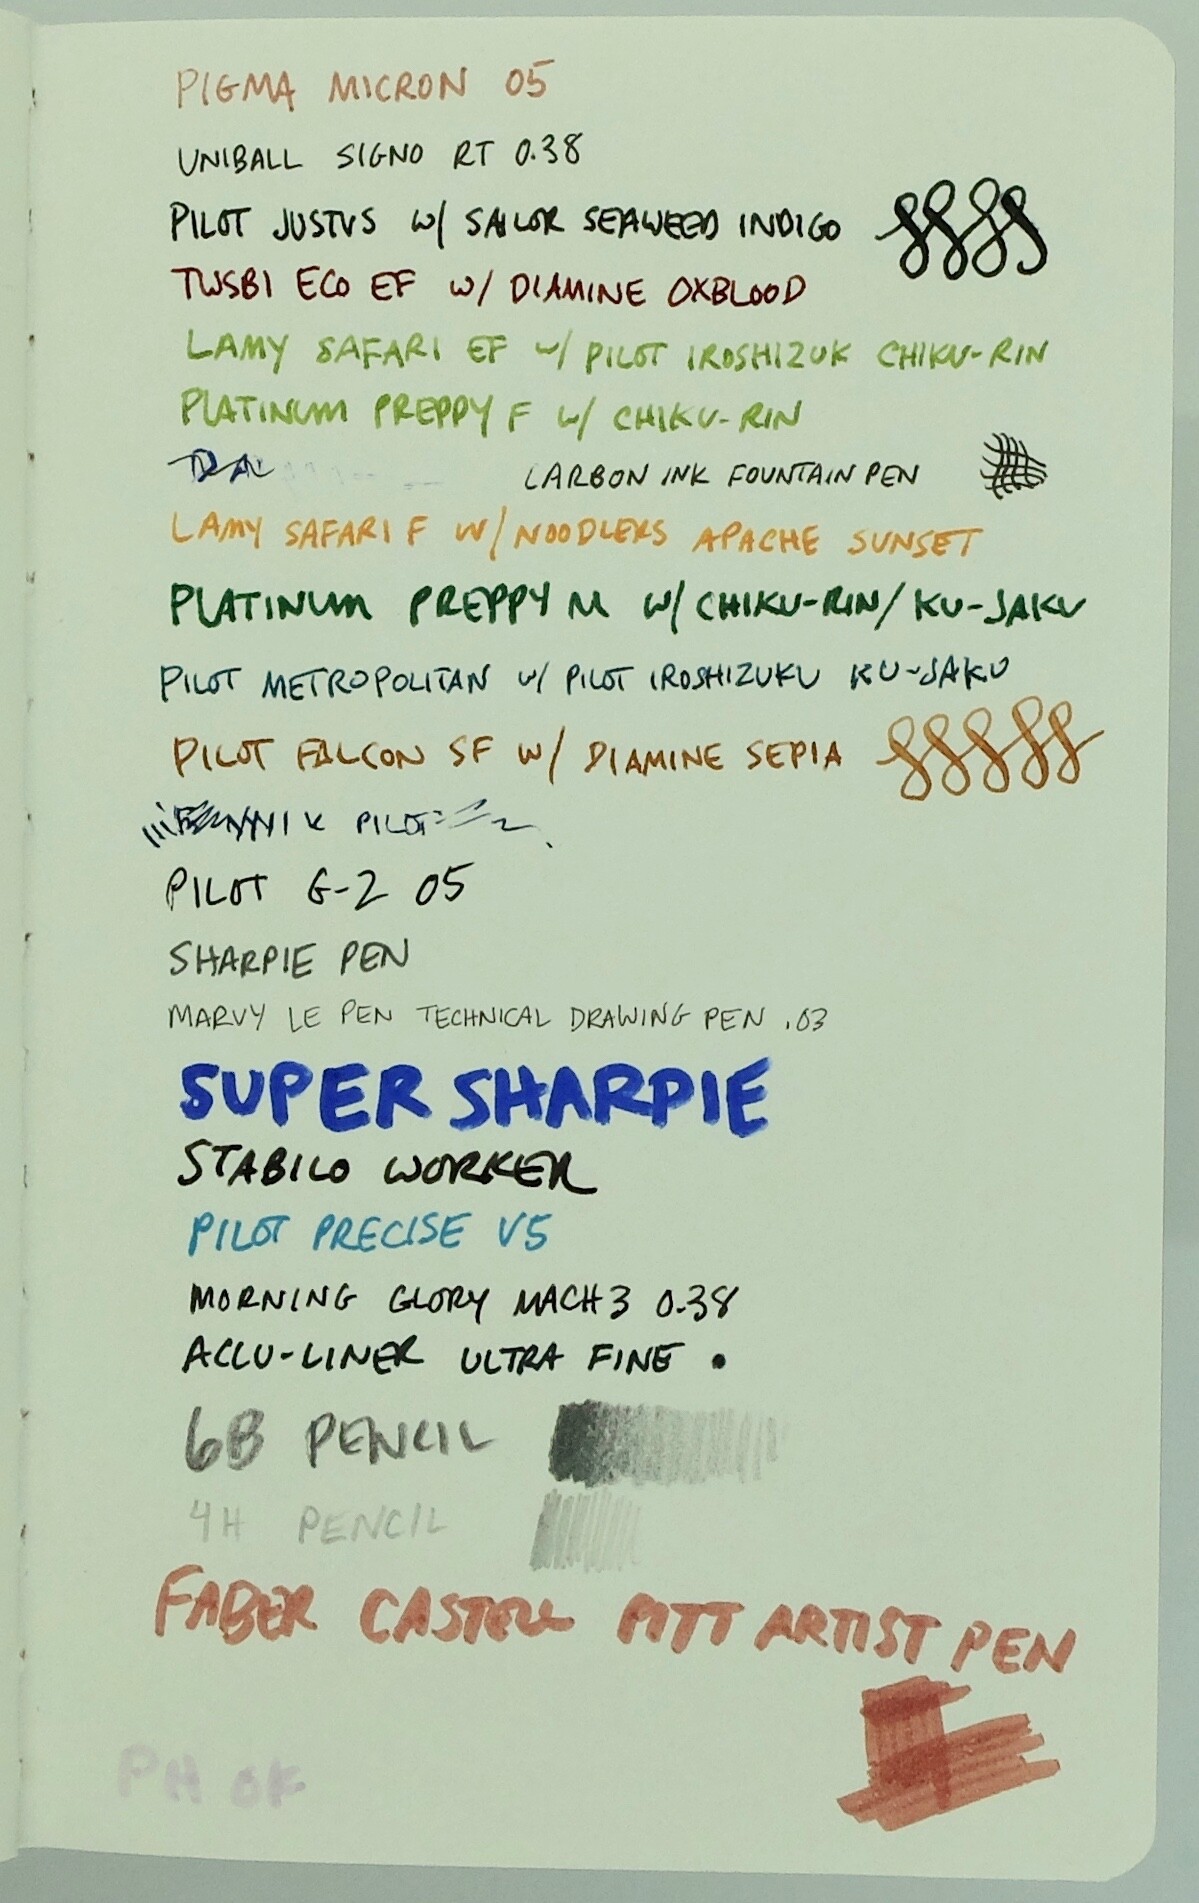 PIGMA MICRON 05
UNIBALL SIGNO RT 0.38
PILOT JUSTUS W/ SAILOR SEAWEED INDIGO
TWSBI ECO EF W/ DIAMINE OXBLOOD
LAMY SAFARI EF W/ PILOT IROSHIZUK CHIKU-RIN
PLATINUM PREPPY F W/ CHIKU-RIN
CARBON INK FOUNTAIN PEN
LAMY SAFARI F W/ NOODLERS APACHE SUNSET
PLATINUM PREPPY M W/ CHIKU-RIN/KU-JAKU
PILOT METROPOLITAN W/ PILOT IROSHIZUKU KU-JAKU
PILOT FALCON SF W/ DIAMINE SEPIA
PILOT
PILOT G-2 05
SHARPIE PEN
MARVY LE PEN TECHNICAL DRAWING PEN .03
SUPER SHARPIE
STABILO WORKER
PILOT PRECISE V5
MORNING GLORY MACH 3 0.38
ACCU-LINER ULTRA FINE
6B PENCIL
4H PENCIL
FABER CASTELL PITT ARTIST PEN
PH OK